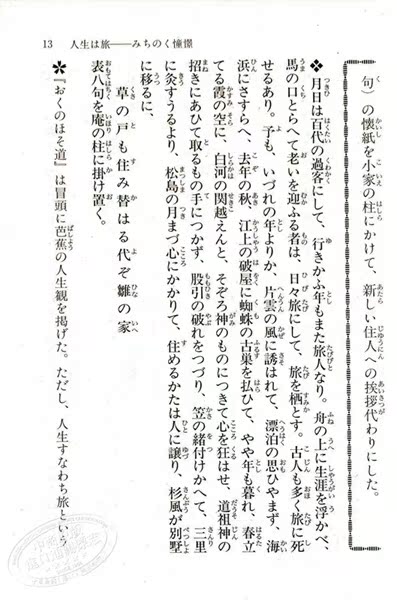 13　人生は旅――みちのく憧憬
句）の懐紙を小家の柱にかけて、新しい住人への挨拶代わりにした。
❖月日は百代の過客にして、行きかふ年もまた旅人なり。舟の上に生涯を浮かべ、
馬の口とらへて老いを迎ふる者は、日々旅にして、旅を栖とす。古人も多く旅に死
せるあり。予も、いづれの年よりか、片雲の風に誘はれて、漂泊の思ひやまず、海
浜にさすらへ、去年の秋、江上の破屋に蜘蛛の古巣を払ひて、やや年も暮れ、春立
てる霞の空に、白河の関越えんと、そぞろ神のものにつきて心を狂はせ、道祖神の
招きにあひて取るもの手につかず、股引の破れをつづり、笠の緒付けかへて、三里
に灸すうるより、松島の月まづ心にかかりて、住めるかたは人に譲り、杉風が別墅
に移るに、
草の戸も住み替はる代ぞ雛の家
表八句を庵の柱に掛け置く。
✽『おくのほそ道』は冒頭に芭蕉の人生観を掲げた。ただし、人生すなわち旅という